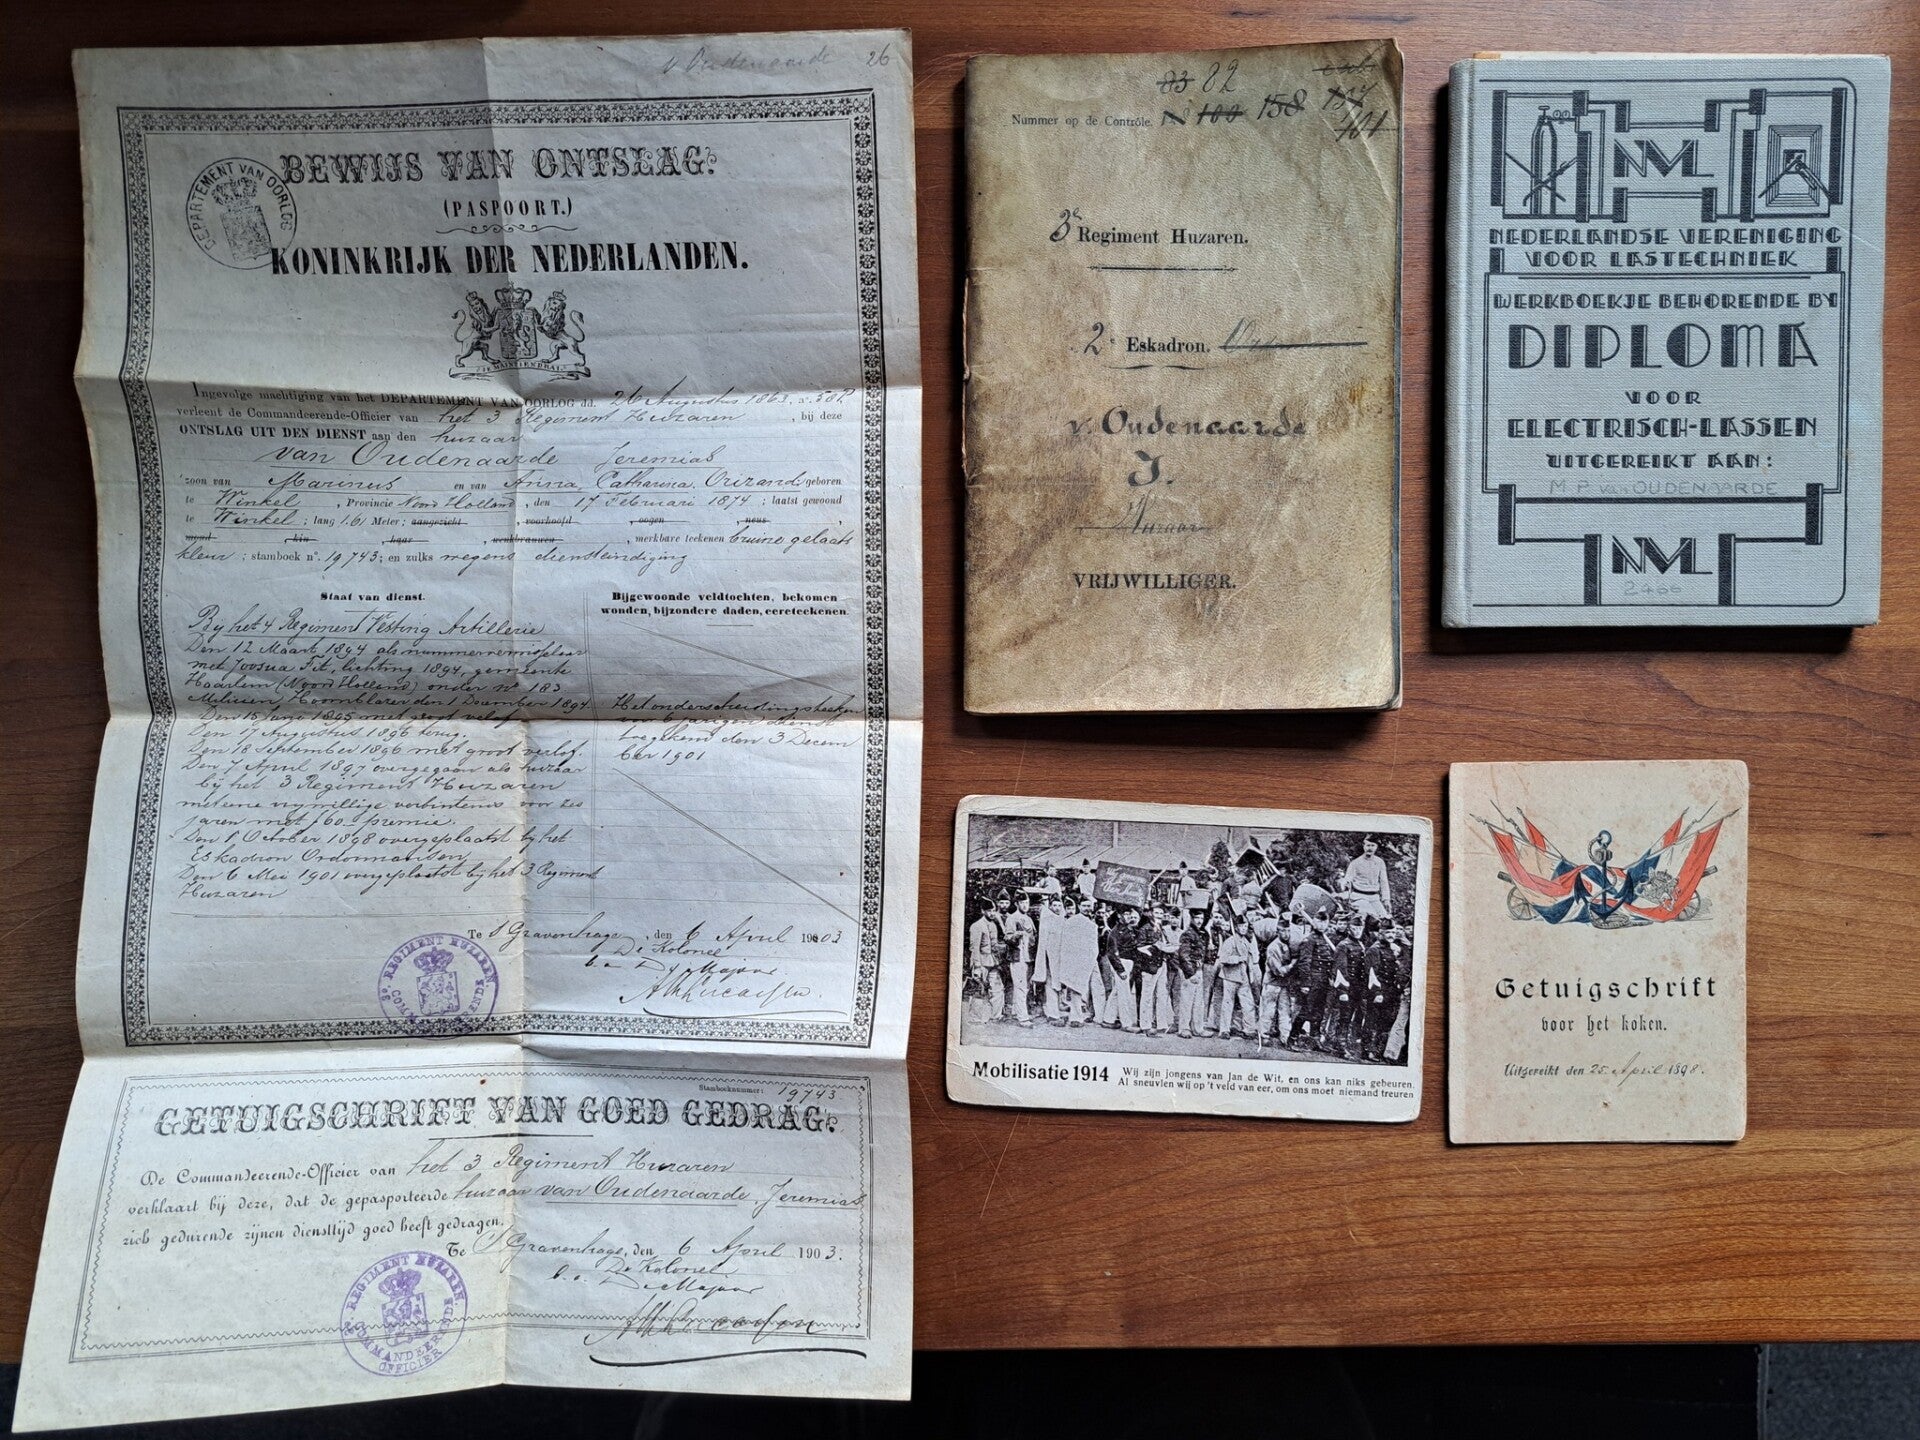 v Oudenaarde 26
BEWIJS VAN ONTSLAG.
(PASPOORT.)
DEPARTEMENT VAN OORLOG
KONINKRIJK DER NEDERLANDEN.
JE MAINTIENDRAI
Ingevolge machtiging van het DEPARTEMENT VAN OORLOG dd. 26 Augustus 1863, n°. 58
verleent de Commandeerende-Officier van het 3 Regiment Huzaren, bij deze
ONTSLAG UIT DEN DIENST aan den huzaar
van Oudenaarde Jeremias
zoon van Marinus en van Anna Catharina Orizand geboren
te Winkel, Provincie Noord Holland, den 17 Februari 1874; laatst gewoond
te Winkel; lang 1.61 Meter; aangezicht, voorhoofd, oogen, neus
mond, kin, haar, wenkbrauwen, merkbare teekenen bruine gelaats
kleur; stamboek n°. 19743; en zulks wegens diensteindiging
Staat van dienst.
By het 4 Regiment Vesting Artillerie
Den 12 Maart 1894 als nummerverwisselaar
met Joosua Tit, lichting 1894, gemeente
Haarlem (Noord Holland) onder n° 183
Milicien, Hoornblazer den 1 December 1894
Den 15 Juni 1895 met groot verlof.
Den 17 Augustus 1896 terug.
Den 18 September 1896 met groot verlof.
Den 7 April 1897 overgegaan als huzaar
bij het 3 Regiment Huzaren
met eene vrijwillige verbintenis voor zes
jaren met f 60.- premie.
Den 1 October 1898 overgeplaatst bij het
Eskadron Ordonnansen
Den 6 Mei 1901 overgeplaatst bij het 3 Regiment
Huzaren
Bijgewoonde veldtochten, bekomen
wonden, bijzondere daden, eereteekenen.
Het onderscheidingsteeken
voor 6 jarigen dienst
toegekend den 3 Decem
ber 1901
Te 's Gravenhage, den 6 April 1903
De Kolonel
b.a. De Majoor
3e. REGIMENT HUZAREN
COMMANDEERENDE
Stamboeknummer: 19743
GETUIGSCHRIFT VAN GOED GEDRAG.
De Commandeerende-Officier van het 3 Regiment Huzaren
verklaart bij deze, dat de gepasporteerde huzaar van Oudenaarde, Jeremias
zich gedurende zijnen diensttijd goed heeft gedragen.
Te 's Gravenhage, den 6 April 1903.
De Kolonel
b.a. De Majoor
3e. REGIMENT HUZAREN
COMMANDEERENDE
OFFICIER
83 82
Nummer op de Contrôle. N 100 158 137
101
3e Regiment Huzaren.
2e Eskadron.
v. Oudenaarde
J.
Huzaar
VRIJWILLIGER.
NVL
NEDERLANDSE VERENIGING
VOOR LASTECHNIEK
WERKBOEKJE BEHORENDE BY
DIPLOMA
VOOR
ELECTRISCH-LASSEN
UITGEREIKT AAN:
M.P. van OUDENAARDE
NVL
2466
Mobilisatie 1914
Wij zijn jongens van Jan de Wit, en ons kan niks gebeuren.
Al sneuvlen wij op 't veld van eer, om ons moet niemand treuren
Getuigschrift
voor het koken.
Uitgereikt den 25 April 1898.